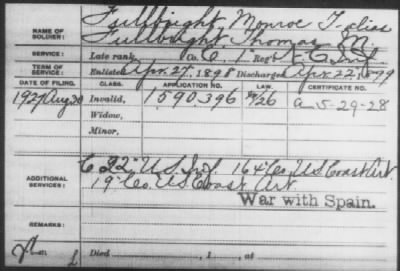 Fullbright, Monroe T. alias
NAME OF SOLDIER: Fullbright, Thomas M.
SERVICE: Late rank, Co. C, 1" Reg't N.C. Inf.
TERM OF SERVICE: Enlisted Apr. 27, 1898 Discharged Apr. 22, 1899
DATE OF FILING. CLASS. APPLICATION NO. LAW. CERTIFICATE NO.
1927 Aug 30 Invalid, 1590396 /26 a 5-29-28
Widow,
Minor,
ADDITIONAL SERVICES: C 22" U.S. Inf. 164 Co. U.S. Coast Art.
19" Co. U.S. Coast Art.
War with Spain.
REMARKS:
Died , 1 , at